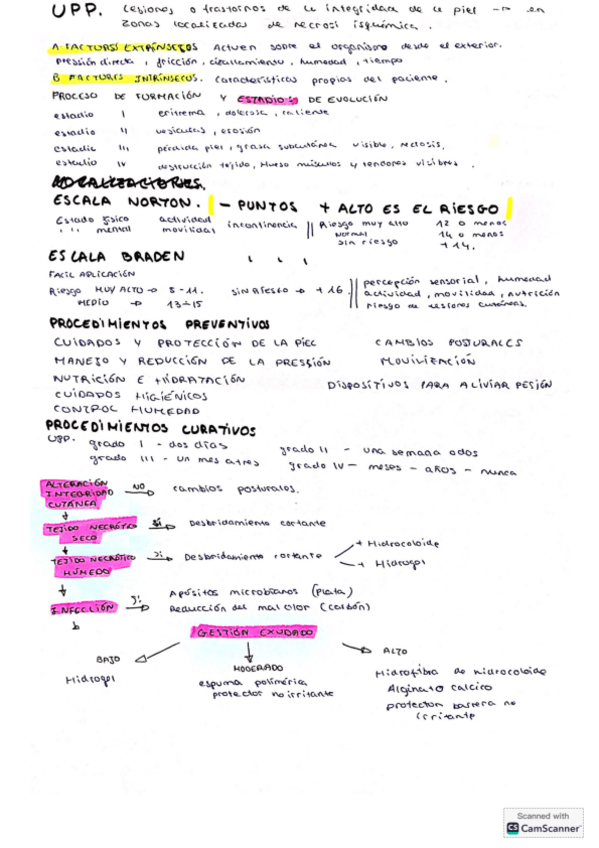 UPP. Lesiones o trastornos de la integridad de la piel → en
zonas localizadas de necrosi isquémica.
A FACTORS EXTRÍNSECOS Actuen sobre el organismo desde el exterior.
pressión directa, fricción, cizallamiento, humedad, tiempo
B FACTORES INTRÍNSECUS. características propias del paciente.
PROCESO DE FORMACIÓN Y ESTADIOS DE EVOLUCIÓN
estadio I eritrema, dolorosa, caliente
estadio II vesiculas, erosión
estadio III pérdida piel, grasa subcutánea visible, necrosis.
estadio IV destrucción tejido, Hueso músculos y tendones visibles.
ESCALA NORTON. - PUNTOS + ALTO ES EL RIESGO
Estado físico actividad incontinencia Riesgo muy alto 12 o menos
" " mental movilidad normal 14 o menos
sin riesgo + 14.
ESCALA BRADEN
FACIL APLICACIÓN
Riesgo MUY ALTO → 5-11. SIN RIESGO → +16. percepción sensorial, humedad
MEDIO → 13-15 actividad, movilidad, nutrición
riesgo de lesiones cutáneas.
PROCEDIMIENTOS PREVENTIVOS
CUIDADOS Y PROTECCIÓN DE LA PIEL CAMBIOS POSTURALES
MANEJO Y REDUCCIÓN DE LA PRESSIÓN MOVILIZACIÓN
NUTRICIÓN E HIDRATACIÓN DISPOSITIVOS PARA ALIVIAR PESIÓN
CUIDADOS HIGIÉNICOS
CONTROL HUMEDAD
PROCEDIMIENTOS CURATIVOS
UPP. grado I - dos días grado II - una semana o dos
grado III - un mes a tres grado IV - meses - años - nunca
ALTERACIÓN INTEGRIDAD CUTÁNEA NO → cambios posturales.
TEJIDO NECRÓTICO SECO Si → Desbridamiento cortante
TEJIDO NECRÓTICO HÚMEDO Si → Desbridamiento cortante + Hidrocoloide
+ Hidrogel
INFECCIÓN Si → Apósitos microbianos (plata)
Reducción del mal olor (carbón)
GESTIÓN EXUDADO
BAJO MODERADO ALTO
Hidrogel espuma polimérica Hidrofibra de hidrocoloide
protector no irritante Alginato calcico
protector barrera no
irritante
Scanned with
CS CamScanner